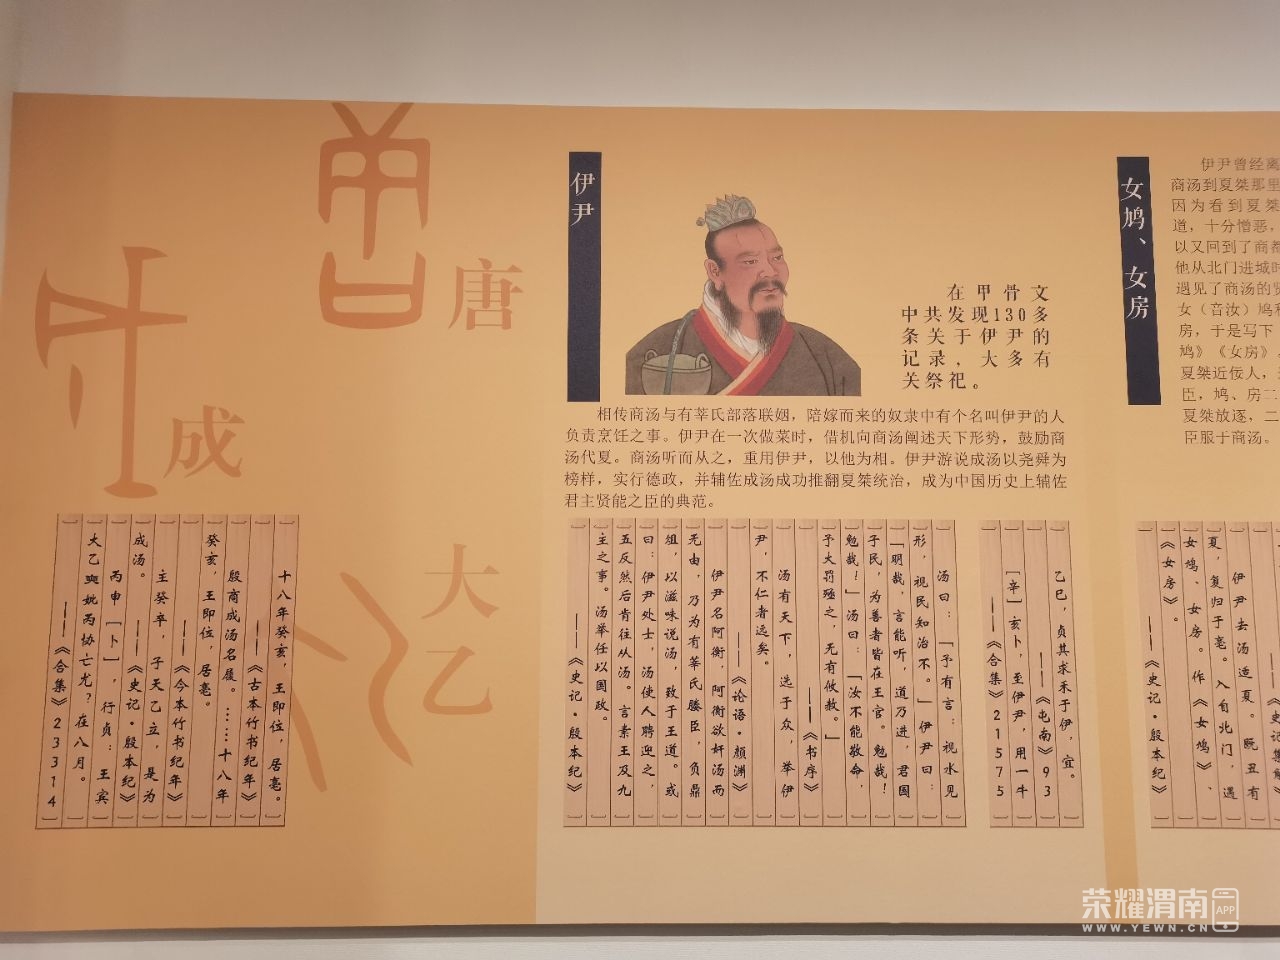 唐
成
大乙
十八年癸亥，王即位，居亳。
——《古本竹书纪年》
殷商成汤名履。……十八年
癸亥，王即位，居亳。
——《今本竹书纪年》
主癸卒，子天乙立，是为
成汤。
——《史记·殷本纪》
丙申［卜］，行贞：王宾
大乙奭妣丙协亡尤？在八月。
——《合集》23314
伊尹
在甲骨文
中共发现130多
条关于伊尹的
记录，大多有
关祭祀。
相传商汤与有莘氏部落联姻，陪嫁而来的奴隶中有个名叫伊尹的人
负责烹饪之事。伊尹在一次做菜时，借机向商汤阐述天下形势，鼓励商
汤代夏。商汤听而从之，重用伊尹，以他为相。伊尹游说成汤以尧舜为
榜样，实行德政，并辅佐成汤成功推翻夏桀统治，成为中国历史上辅佐
君主贤能之臣的典范。
乙巳，贞其求禾于伊，宜。
——《屯南》93
［辛］亥卜，至伊尹，用一牛
——《合集》21575
汤曰：「予有言：视水见
形，视民知治不。」伊尹曰：
「明哉，言能听，道乃进，君国
子民，为善者皆在王官。勉哉！
勉哉！」汤曰：「汝不能敬命，
予大罚殛之，无有攸赦。」
——《书序》
汤有天下，选于众，举伊
尹，不仁者远矣。
——《论语·颜渊》
伊尹名阿衡，阿衡欲奸汤而
无由，乃为有莘氏媵臣，负鼎
俎，以滋味说汤，致于王道。或
曰：伊尹处士，汤使人聘迎之，
五反然后肯往从汤。言素王及九
主之事。汤举任以国政。
——《史记·殷本纪》
女鸠、女房
伊尹曾经离
商汤到夏桀那里
因为看到夏桀
道，十分憎恶，
以又回到了商都
他从北门进城时
遇见了商汤的贤
女（音汝）鸠和
房，于是写下
鸠》《女房》。
夏桀近佞人，
臣，鸠、房二
夏桀放逐，二
臣服于商汤。
——《史记集解》
伊尹去汤适夏。既丑有
夏，复归于亳。入自北门，遇
女鸠、女房。作《女鸠》、
《女房》。
——《史记·殷本纪》
荣耀渭南
APP
WWW.YEWN.CN